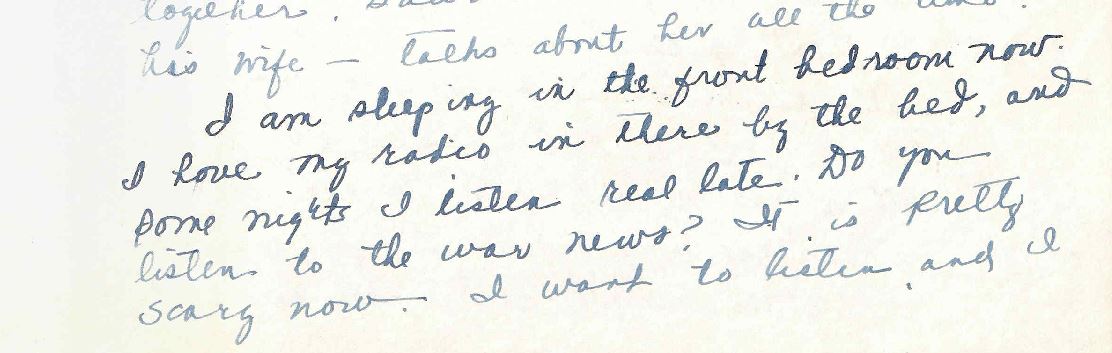 together.
his wife — talks about her all the time.
I am sleeping in the front bedroom now.
I have my radio in there by the bed, and
some nights I listen real late. Do you
listen to the war news? It is pretty
scary now. I want to listen, and I